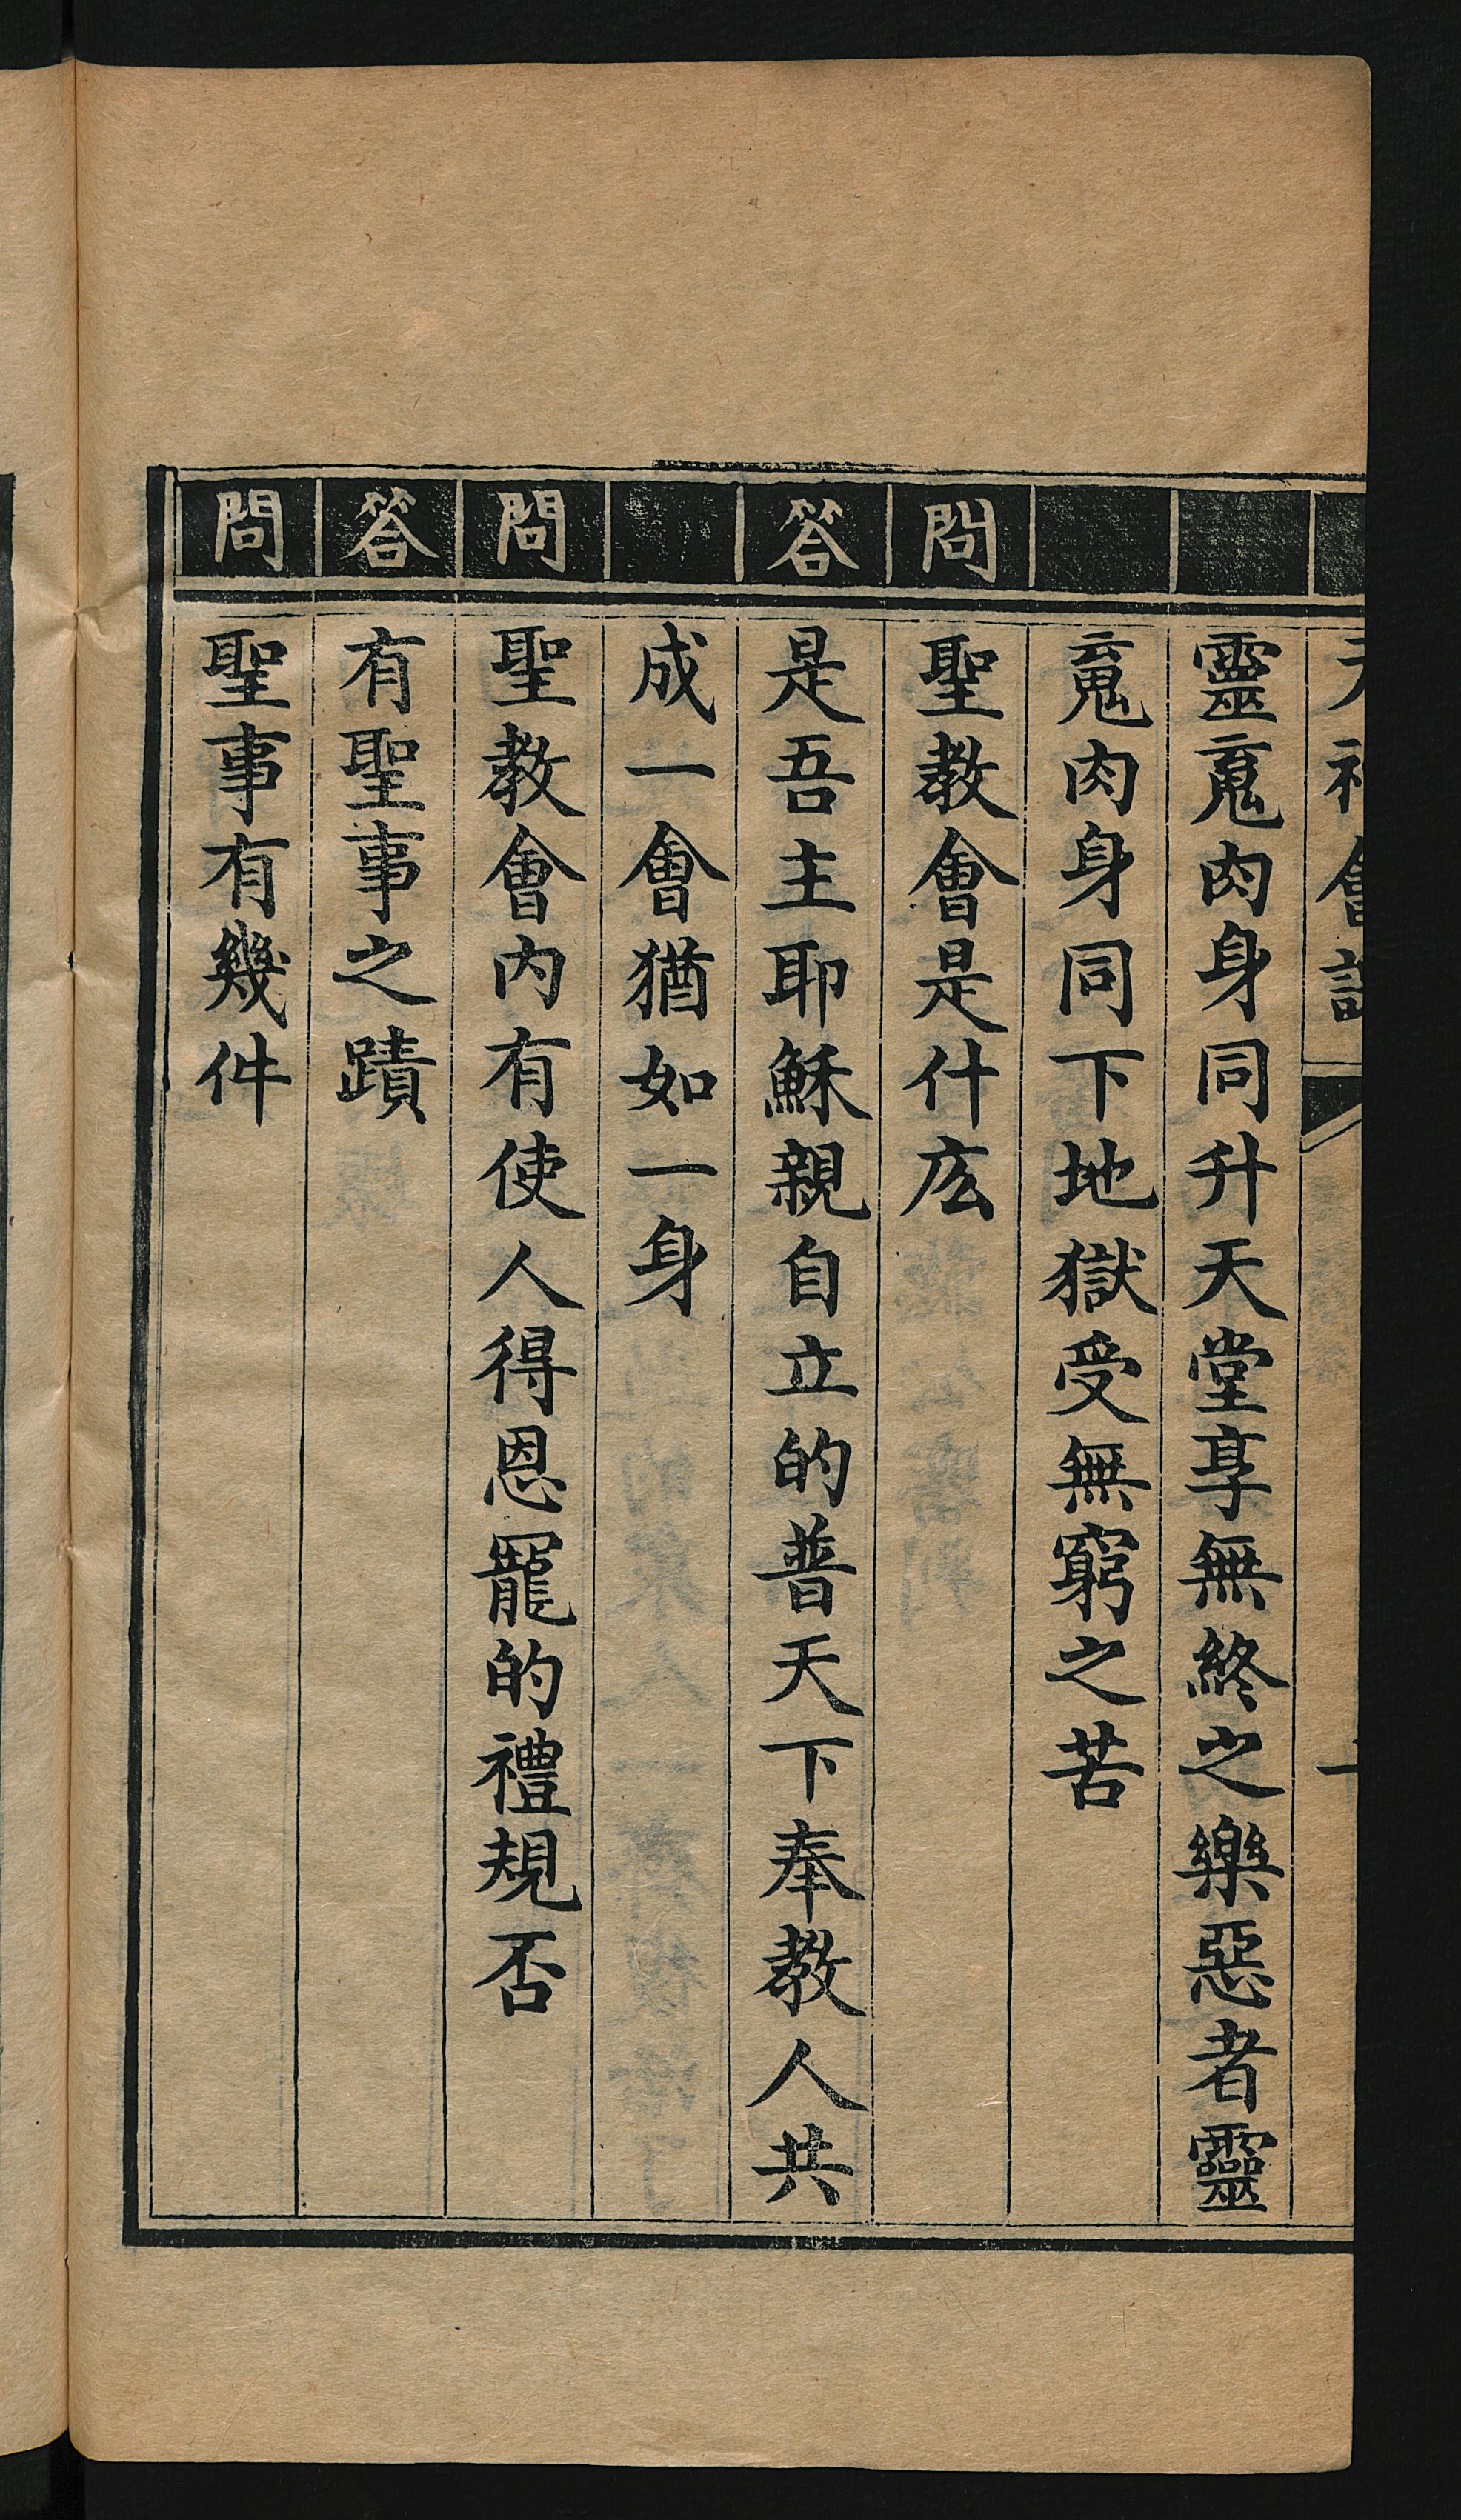 天神會課
靈䰟肉身同升天堂享無終之樂惡者靈
䰟肉身同下地獄受無窮之苦
問 聖教會是什庅
答 是吾主耶穌親自立的普天下奉教人共
成一會猶如一身
問 聖教會內有使人得恩寵的禮規否
答 有聖事之蹟
問 聖事有幾件